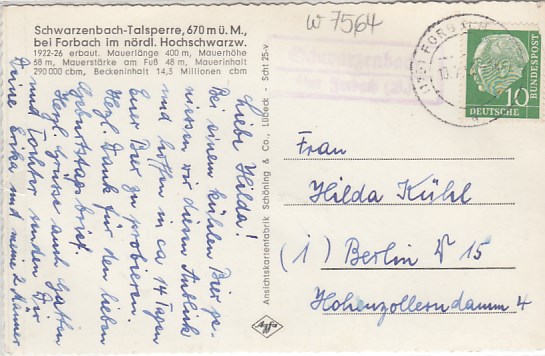 w 7564
Schwarzenbach-Talsperre, 670 m ü. M.,
bei Forbach im nördl. Hochschwarzw.
1922-26 erbaut. Mauerlänge 400 m, Mauerhöhe
68 m, Mauerstärke am Fuß 48 m, Mauerinhalt
290 000 cbm, Beckeninhalt 14,3 Millionen cbm
Liebe Hilda!
Bei einem kühlen Bier ge-
niessen wir diesen Anblick
und hoffen in ca. 14 Tagen
Euer Bier zu probieren.
Hzgl. Dank für den lieben
Geburtstagsbrief.
Herzl. Grüsse aus
und Tochter senden Dir
Deine Erika und meine 2 Männer
Ansichtskartenfabrik Schöning & Co., Lübeck - Scht 25-v
Agfa
FORBACH
10
DEUTSCHE
BUNDESPOST
Frau
Hilda Kühl
(1) Berlin W 15
Hohenzollerndamm 4